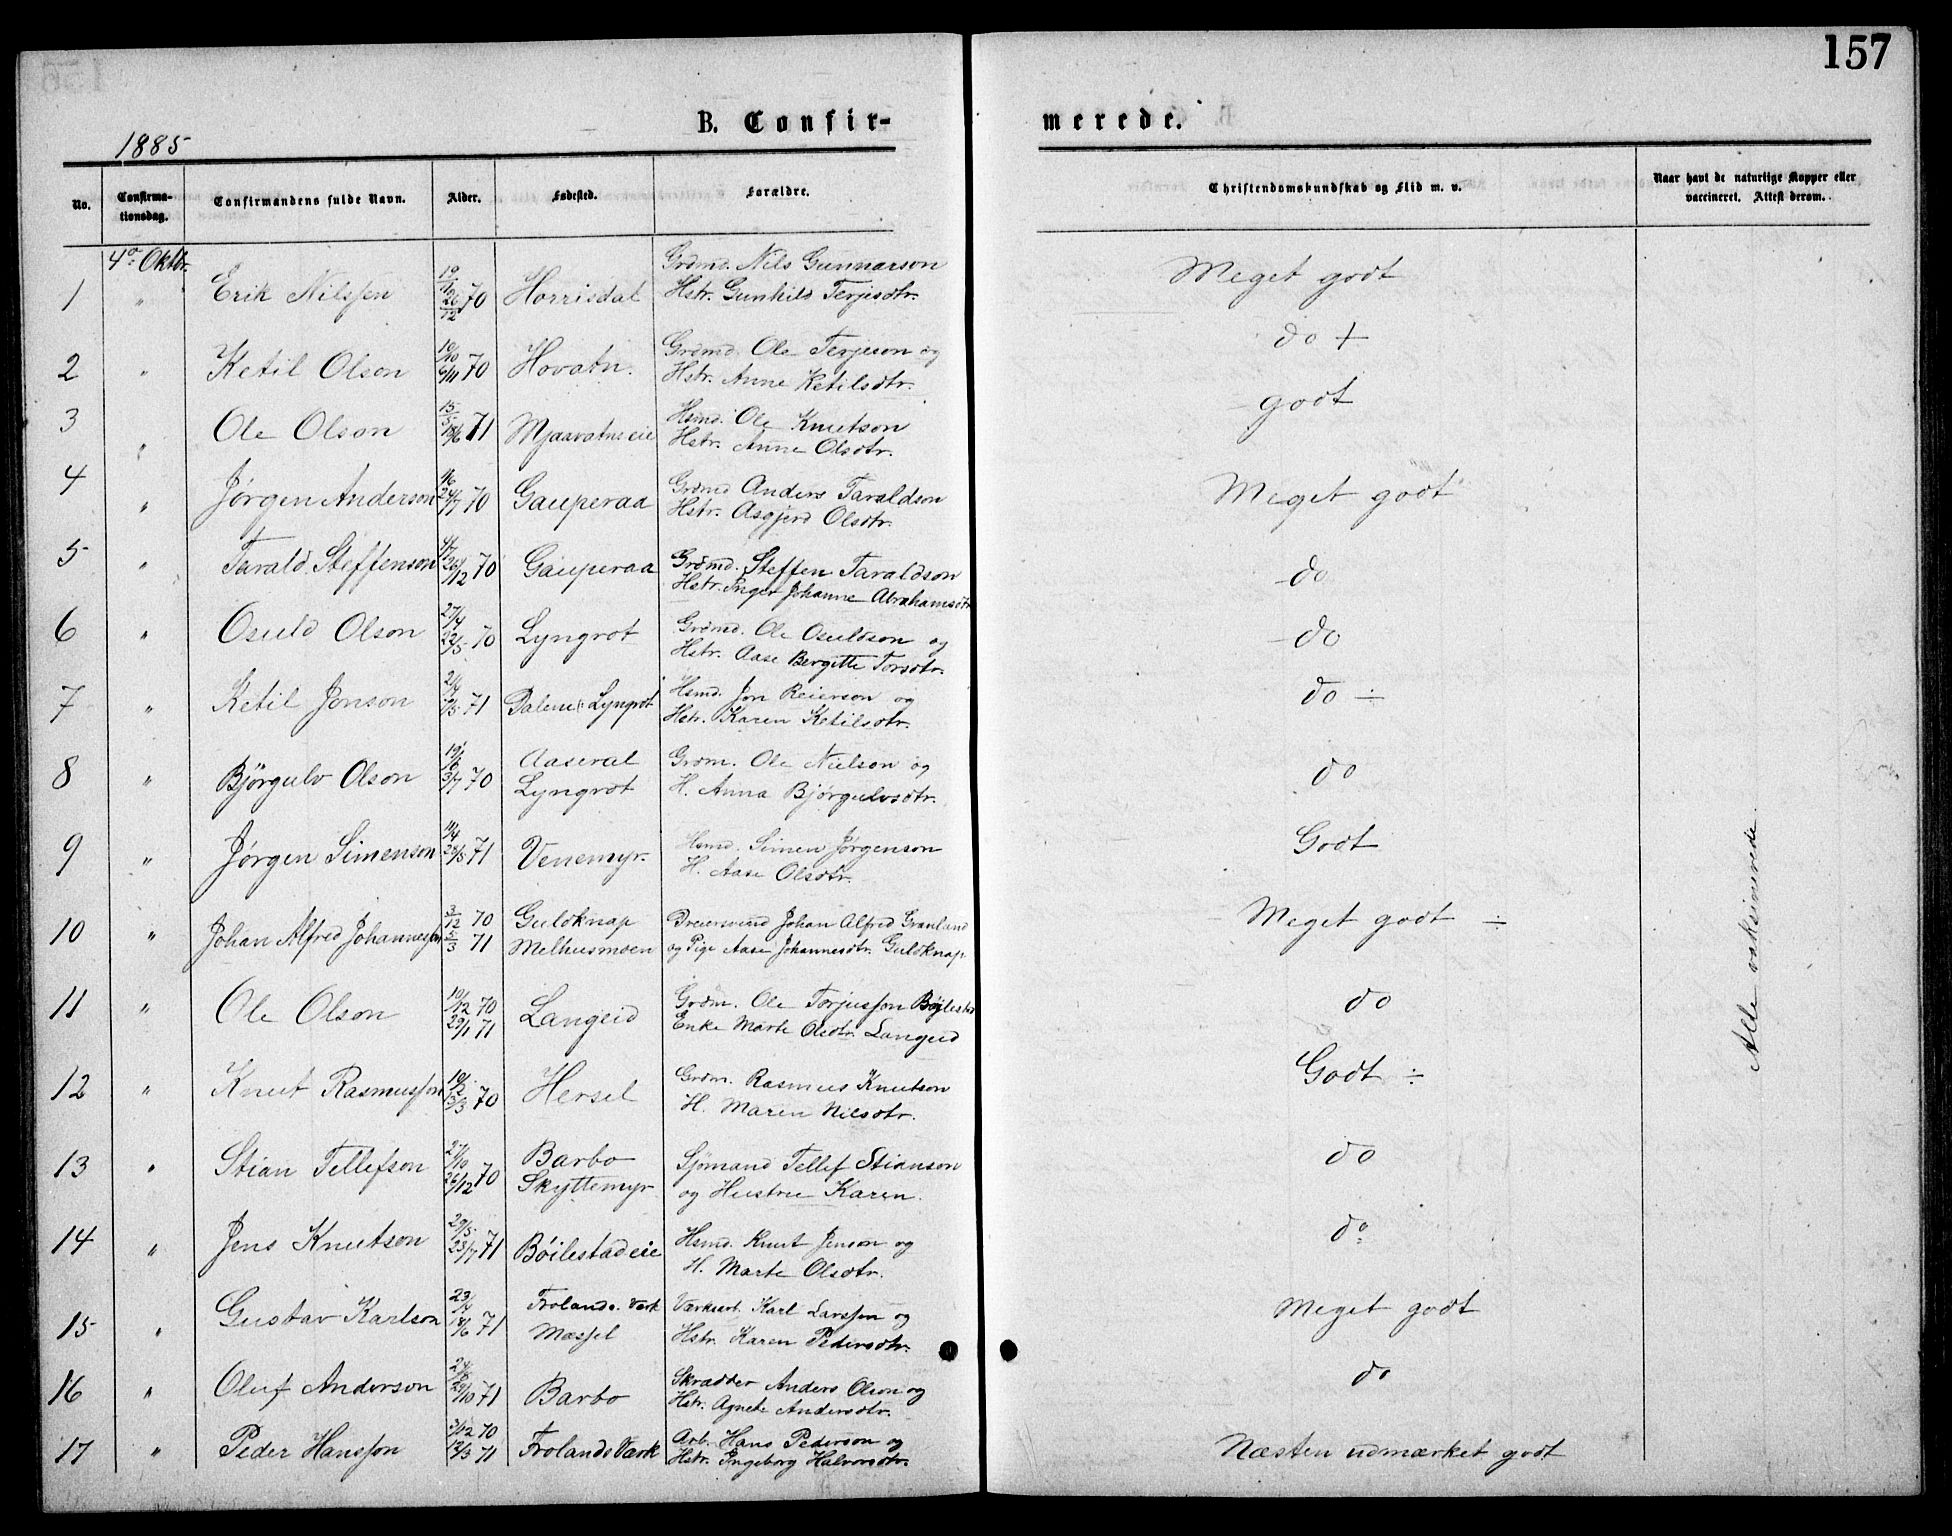 157
1885
B. Confir-
merede.
No.
Confirma-
tionsdag.
Confirmandens fulde Navn.
Alder.
Fødested.
Forældre.
Christendomskundskab og Flid m. v.
Naar havt de naturlige Kopper eller
vaccineret. Attest derom.
4de Oktbr.
1 " Erik Nilssen 19/10 26/12 70 Horrisdal Grdmd. Nils Gunnarson
Hstr. Gunhild Terjesdtr. Meget godt
2 " Ketil Olson 19/10 6/11 70 Hovatn. Grdmd. Ole Terjeson og
Hstr. Anne Ketilsdtr. do +
3 " Ole Olson 15/5 18/6 71 Mjaavatnseie Hsmd. Ole Knutson
Hstr. Anne Olsdtr. godt
4 " Jørgen Anderson 11/6 24/7 70 Gauperaa Grdmd Anders Taraldson
Hstr. Asgjerd Olsdtr. Meget godt
5 " Tarald Steffenson 26/12 70 Gauperaa Grdmd. Steffen Taraldson
Hstr. Inger Johanne Abrahamsdtr do
6 " Osuld Olson 27/4 22/5 70 Lyngrot Grdmd. Ole Osuldson og
Hstr. Aase Bergitte Torsdtr. do
7 " Ketil Jonson 71 Dalene Lyngrot Hsmd. Jon Reierson og
Hstr. Karen Ketilsdtr. do ÷
8 " Bjørgulv Olson 19/6 3/7 70 Aaseral
Lyngrot Grdm. Ole Nielson og
H. Anna Bjørgulvsdtr. do
9 " Jørgen Simenson 11/4 28/5 71 Venemyr. Hsmd. Simen Jørgenson
H. Aase Olsdtr. Godt
10 " Johan Alfred Johannessen 3/12 70
5/3 71 Guldknap
Melhusmoen Dreiersvend Johan Alfred Granlund
og Pige Aase Johannesdtr. Guldknap Meget godt ÷
11 " Ole Olson 10/12 70
29/1 71 Langeid Grdm. Ole Torjussøn Bøjlestad
Enke Marte Olsdtr. Langeid do
12 " Knut Rasmussøn 10/2 13/3 70 Hersel Grdm. Rasmus Knutson
H. Maren Nilsdtr. Godt ÷
13 " Stian Tellefson 27/10 26/12 70 Barbo
Skyttemyr Sjømand Tellef Stianson
og Hustru Karen. do
14 " Jens Knutson 29/5 23/7 71 Bøilestadeie Hsmd. Knut Jenson og
H. Marte Olsdtr. do
15 " Gustav Karlson 23/4 18/6 71 Frolands. Værk
Messel Værksarb. Karl Larssen og
Hstr. Karen Pedersdtr. Meget godt
16 " Oluf Anderson 29/10 71 Barbo Skrædder Anders Olson og
Hstr. Agnete Andersdtr. do
17 " Peder Hanssøn 3/12 70
12/3 71 Frolands Værk Arb. Hans Pederson og
Hstr. Ingeborg Halvorsdtr. Næsten udmærket godt
Alle vaksinerede